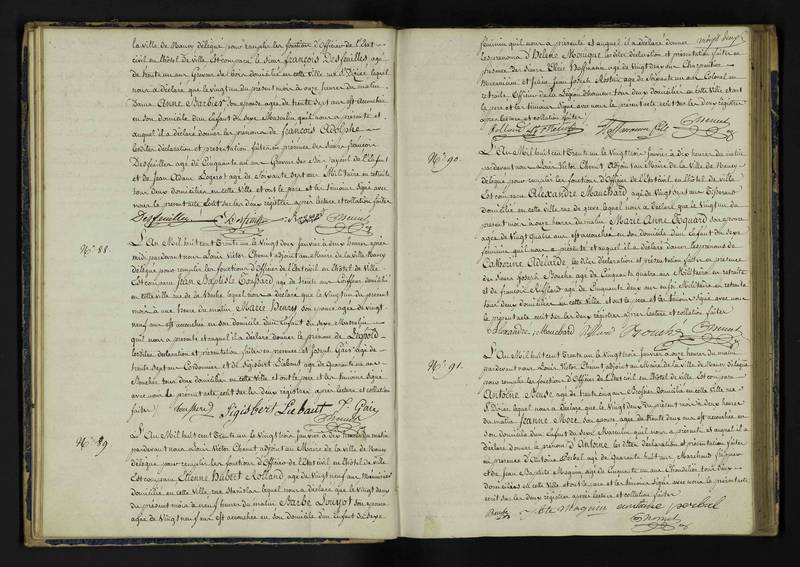 la ville de Nancy délégué pour remplir les fonctions d'Officier de l'Etat
civil en l'hôtel de ville. Est comparu le Sieur françois Desfeuilles, agé
de trente un ans Graveur de bois domicilié en cette ville rue St Dizier, lequel
nous a déclaré que le vingt un du présent mois à onze heures du matin
Dame Anne Barbier son épouse agée de trente sept ans est accouchée
en son domicile d'un Enfant du sexe Masculin qu'il nous a présenté et
auquel il a déclaré donner les prénoms de françois Adolphe
les dites déclaration et présentation faites en présence des Sieurs françois
Desfeuilles agé de Cinquante ans Graveur
et de Jean Adam agé de Soixante sept ans Militaire en retraite
tous deux domiciliés en cette ville et ont le père et les témoins Signé avec
nous le présent acte écrit sur les deux registres après lecture et collation faites
Desfeuilles Desfeuilles Chenut
N.º 88.
L'An Mil huit cent Trente un le Vingt deux janvier à deux heures après
midi pardevant nous Louis Victor Chenut adjoint au Maire de la Ville de Nancy
délégué pour remplir les fonctions d'Officier de l'Etat civil en l'hôtel de Ville
Est comparu Jean Baptiste agé de trente ans Coiffeur domicilié
en cette ville rue de la lequel nous a déclaré que le vingt un du présent
mois à une heure du matin Marie Henry son épouse agée de vingt
neuf ans est accouchée en son domicile d'un Enfant du sexe Masculin
qu'il nous a présenté et auquel il a déclaré donner le prénom de Léopold
les dites déclaration et présentation faites en présence de Joseph Gaire agé de
trente sept ans Cordonnier et de Sigisbert Liebaut agé de Quarante un ans
tous deux domiciliés en cette Ville et ont le père et les témoins Signé
avec nous le présent acte écrit sur les deux registres après lecture et collation
faites Sigisbert Liebaut J. Gaire
Chenut
N.º 89
L'An Mil huit cent Trente un le Vingt trois janvier à dix heures du matin
pardevant nous Louis Victor Chenut adjoint au Maire de la Ville de Nancy
délégué pour remplir les fonctions d'Officier de l'Etat civil en l'hôtel de Ville
Est comparu Etienne Hubert Rolland agé de Vingt neuf ans
domicilié en cette Ville, rue Stanislas lequel nous a déclaré que le Vingt deux
du présent mois à neuf heures du matin Barbe Louyot son épouse
agée de Vingt neuf ans est accouchée en son domicile d'un Enfant du sexe
vingt deux
féminin qu'il nous a présenté et auquel il a déclaré donner
les prénoms d'Hélène Monique les dites déclaration et présentation faites en
présence des Sieurs Hoffmann agé de Vingt deux ans Charpentier
Mécanicien et Jean Joseph agé de Soixante un ans Colonel en
retraite Officier de la Légion d'honneur tous deux domiciliés en cette Ville et ont
le père et les témoins Signé avec nous le présent acte écrit sur les deux registres
après lecture et collation faites
Rolland Hoffmann Chenut
N.º 90.
L'An Mil huit cent Trente un le Vingt trois janvier à dix heures du matin
pardevant nous Louis Victor Chenut Adjoint au Maire de la Ville de Nancy
délégué pour remplir les fonctions d'Officier de l'Etat civil en l'hôtel de ville
Est comparu Alexandre Manchard agé de Vingt sept ans
domicilié en cette ville rue de Grève lequel nous a déclaré que le Vingt un du
présent mois à onze heures du matin Marie Anne Toquard son épouse
agée de Vingt quatre ans est accouchée en son domicile d'un Enfant du sexe
féminin qu'il nous a présenté et auquel il a déclaré donner les prénoms de
Catherine Adélaïde les dites déclaration et présentation faites en présence
des Sieurs Joseph agé de Cinquante quatre ans Militaire en retraite
et de françois agé de Cinquante deux ans aussi Militaire en retraite
tous deux domiciliés en cette Ville, et ont le père et les témoins Signé avec nous
le présent acte écrit sur les deux registres après lecture et collation faites
Alexandre Manchard Chenut
N.º 91.
L'An Mil huit cent Trente un le Vingt trois janvier à onze heures du matin
pardevant nous Louis Victor Chenut adjoint au Maire de la Ville de Nancy délégué
pour remplir les fonctions d'Officier de l'Etat civil en l'hôtel de Ville. Est comparu
Antoine agé de trente cinq ans domicilié en cette Ville rue
St Dizier, lequel nous a déclaré que le Vingt deux du présent mois à deux heures
du matin Jeanne son épouse, agée de trente deux ans est accouchée en
son domicile d'un Enfant du sexe Masculin qu'il nous a présenté et auquel il a
déclaré donner le prénom d'Antoine les dites déclaration et présentation faites
en présence d'Antoine Perbal agé de Quarante huit ans Marchand
et de Jean Baptiste Maquin, agé de Cinquante un ans Chandelier tous deux
domiciliés en cette Ville et ont le père et les témoins Signé avec nous le présent acte
écrit sur les deux registres après lecture et collation faites
Maquin antoine perbal
Chenut